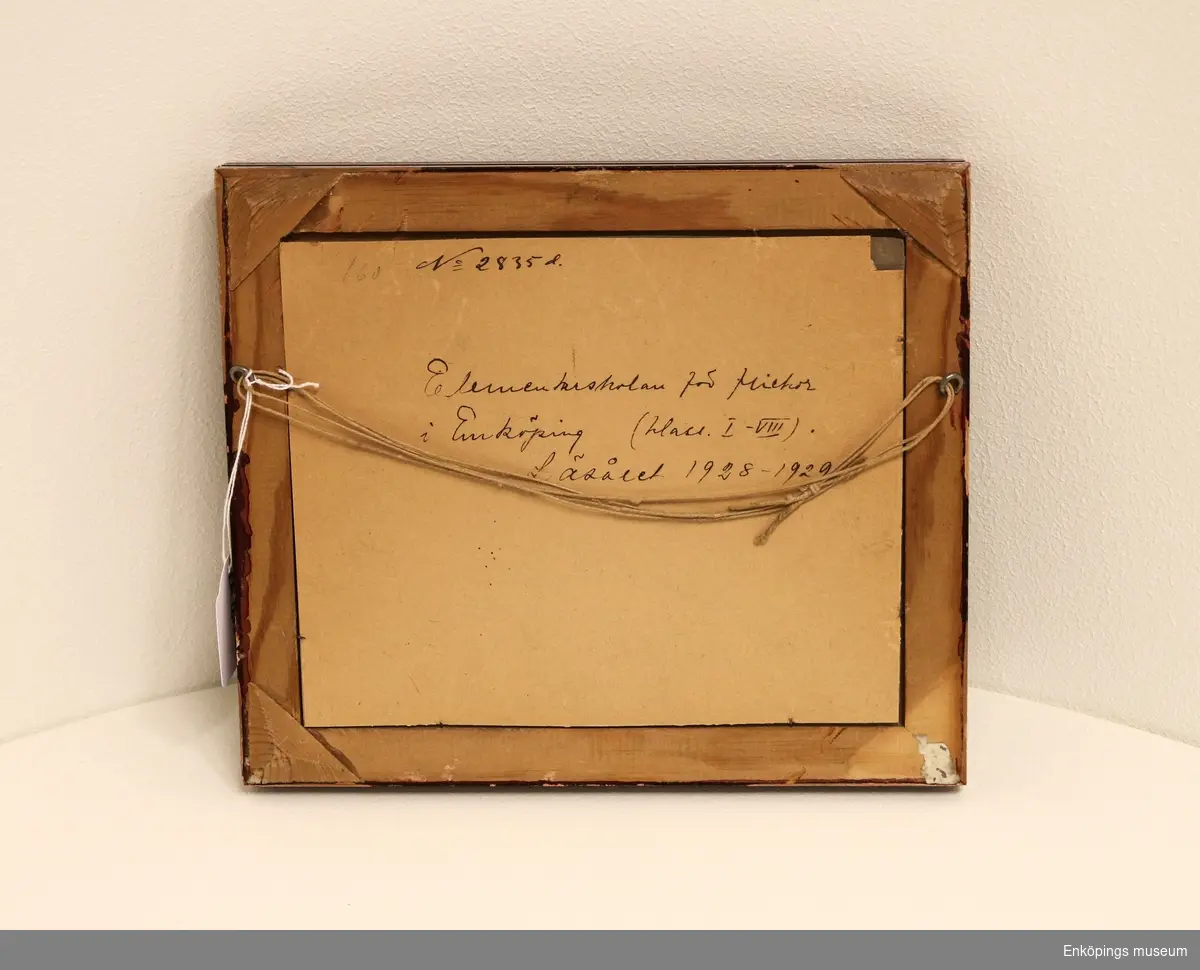 160 No 2835 d.
Elementarskolan för flickor
i Enköping (klass. I-VIII).
Läsåret 1928-1929
Enköpings museum